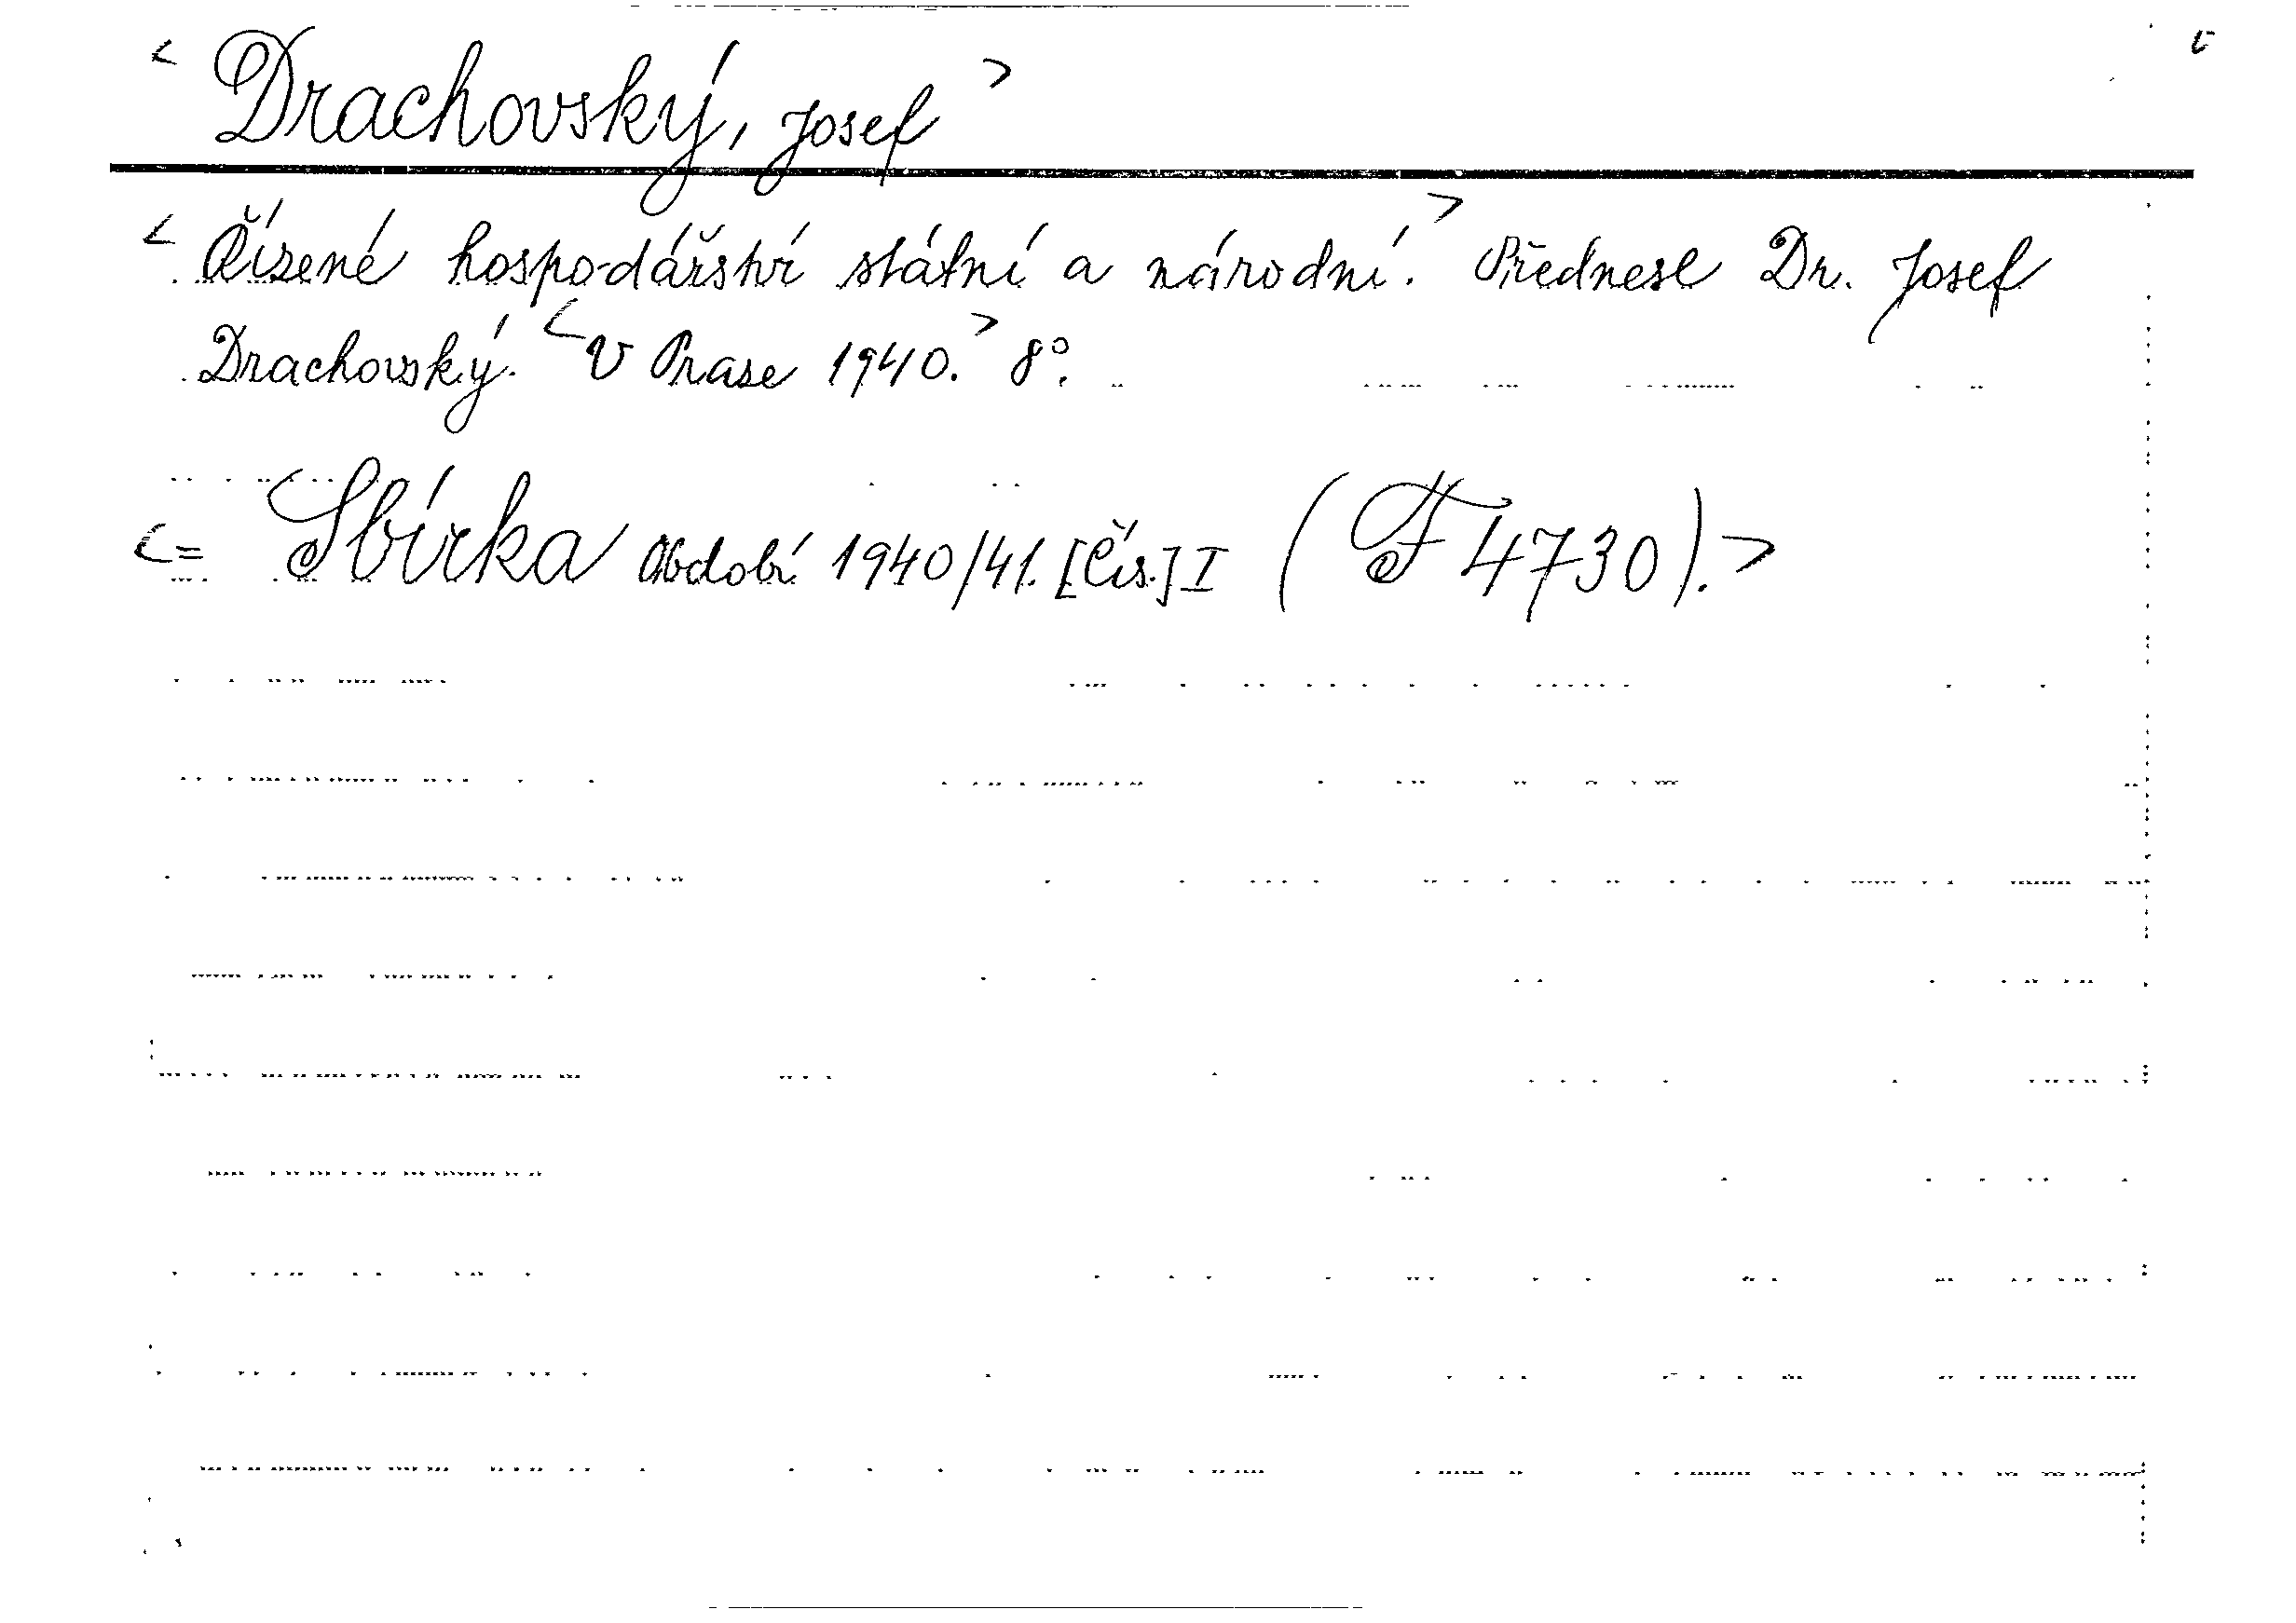 < Drachovský, Josef >
< Řízené hospodářství státní a národní. > Přednese Dr. Josef
Drachovský. < V Praze 1940. > 8°.
<= Sbírka Období 1940/41. [Čís.] I (F 4730). >